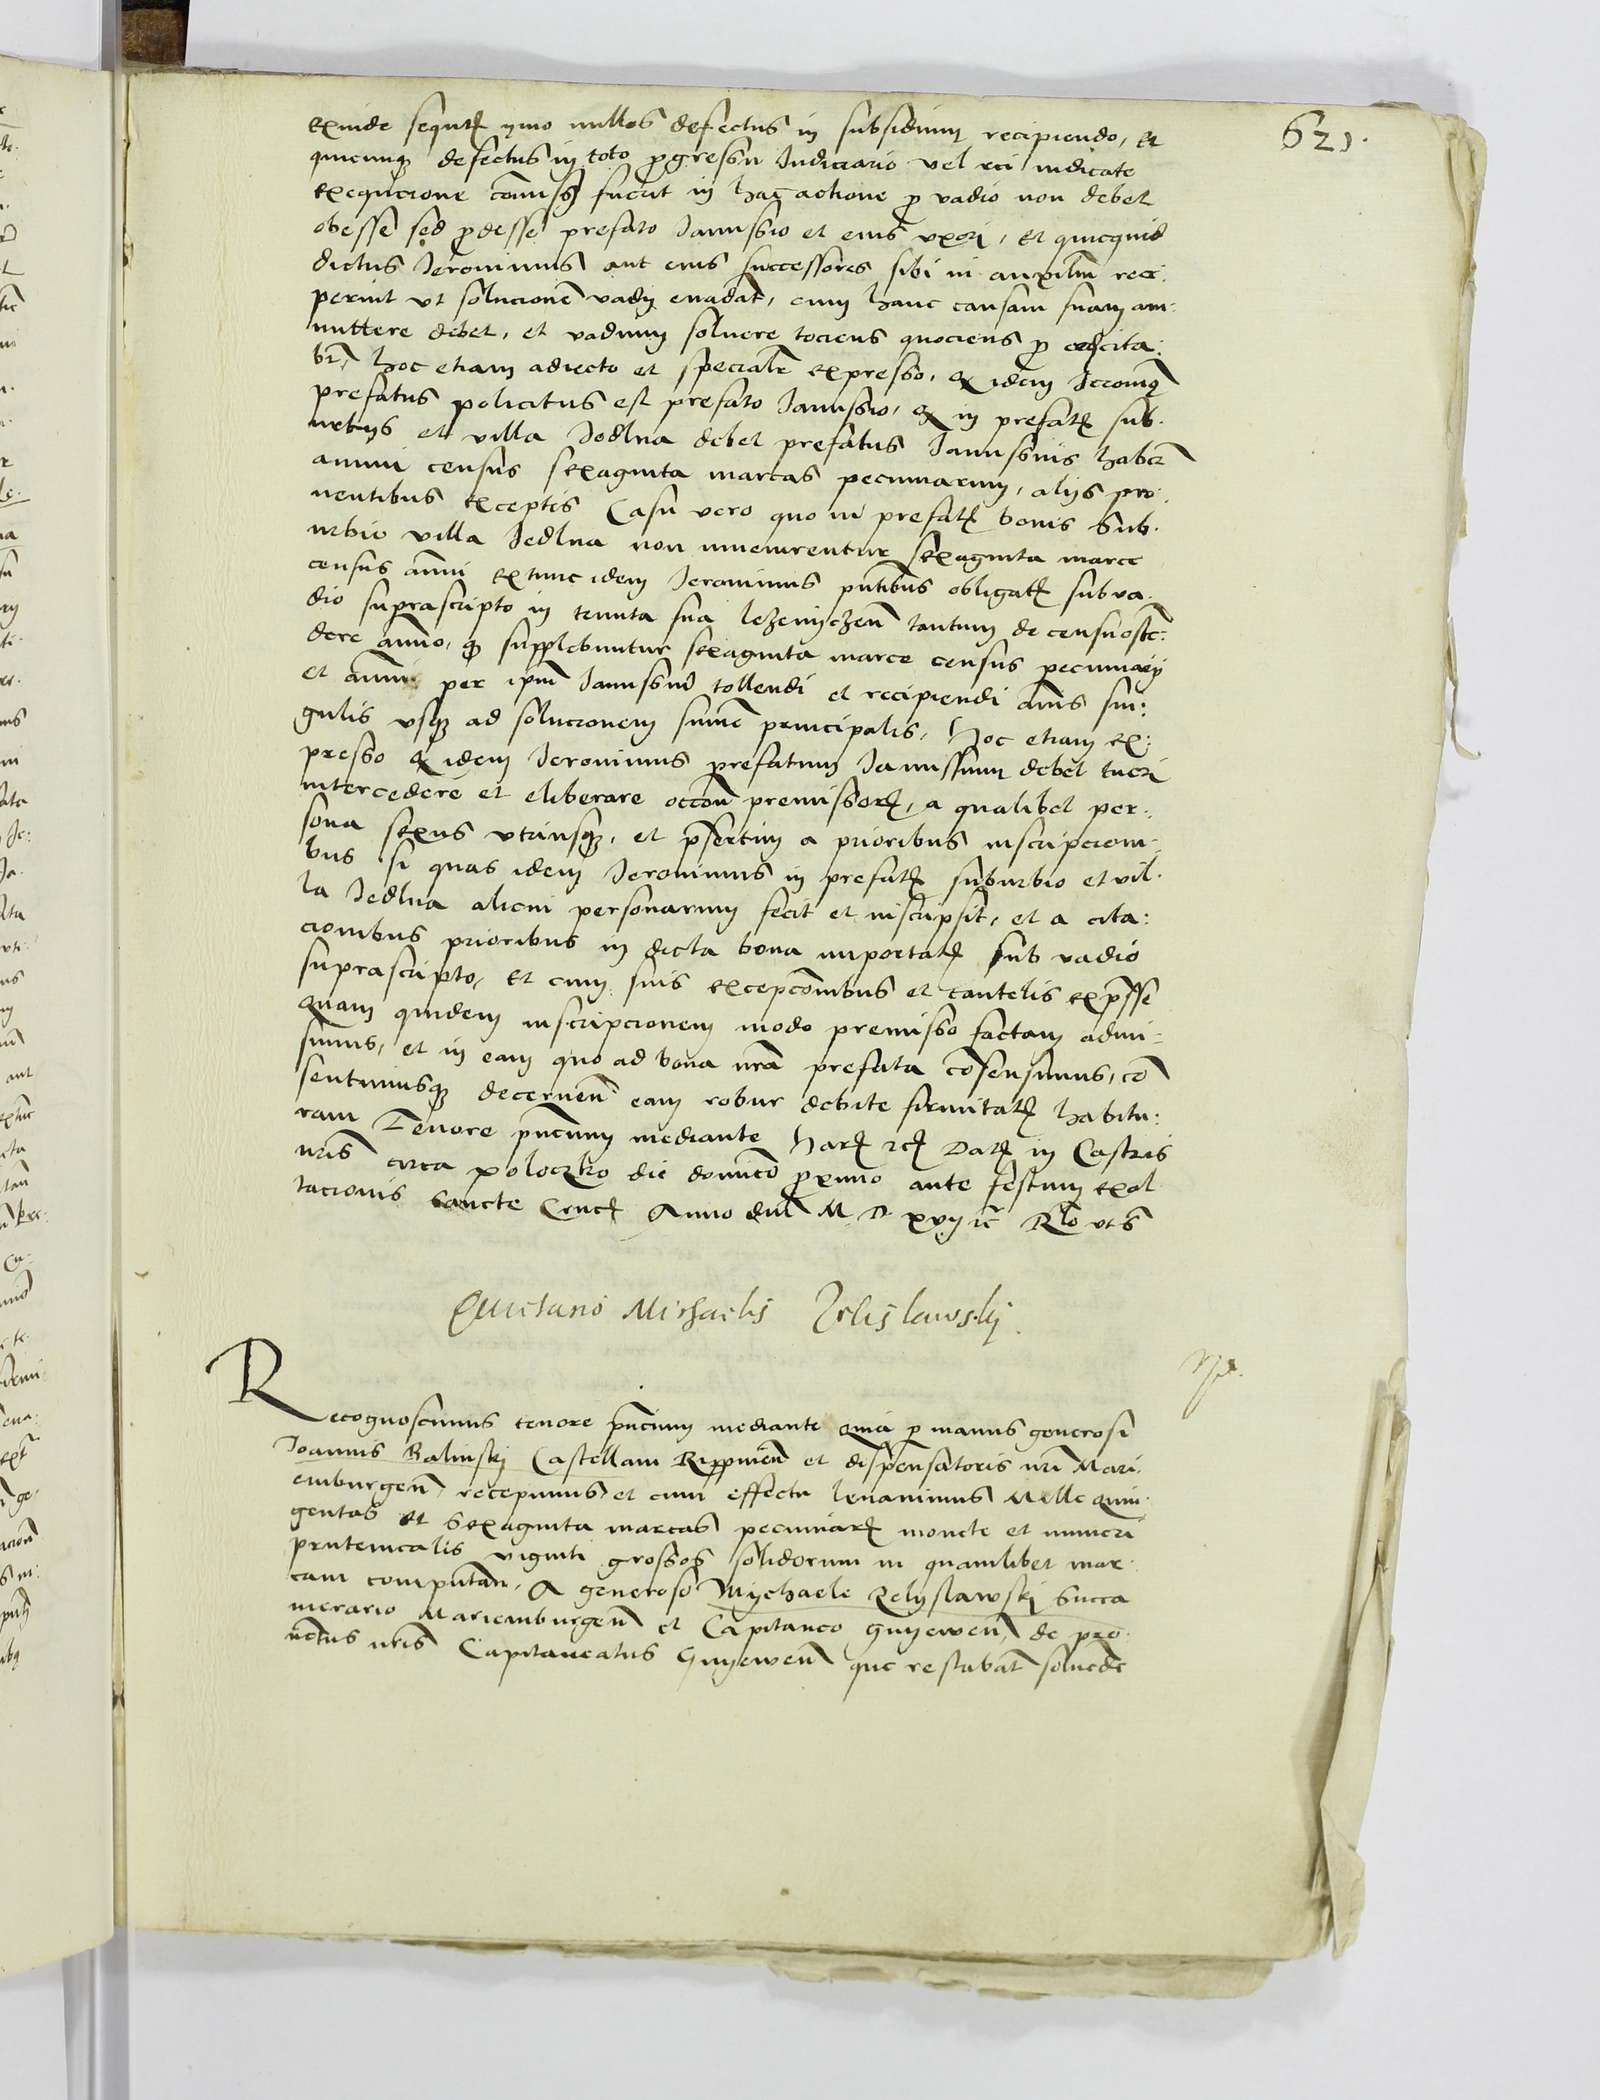 621.
exinde sequtꝭ ymo nullos defectus in subsidium recipiendo, et
quicunqꝫ defectus in toto ꝓgressu Iudiciario vel rei iudicate
exequcione comiss fuerit in hac actione ꝓ vadio non debet
obesse sed ꝓdesse prefato Ianussio et eius vxori, et quicquid
dictus Ieronimus aut eius successores sibi in auxiliū reci-
perint vt solucionē vadij euadāt, cum hanc causam suam am-
mittere debet, et vadium soluere tociens quociens ꝓ eo cita-
br̄, hoc etiam adiecto et specialr̄ expresso, ꝙ idem Ieronimꝰ
prefatus policitus est prefato Ianussio, ꝙ in prefatꝭ sub-
urbijs et villa Iedlna debet prefatus Ianussius haberē
annui census sexaginta marcas pecuniarum, alijs pro-
uentibus exceptis Casu vero quo in prefatꝭ bonis sub-
urbio villa Iedlna non inuenirentur sexaginta marce
census annui extunc idem Ieronimus pn̄tibus obligatꝭ sub va-
dio suprascripto in tenuta sua leżeniczeñ tantum de censu osten-
dere anno, ꝙ supplebuntur sexaginta marce census pecuniarij
et annui per ipm̄ Ianussiū tollendi et recipiendi annis sin-
gulis vsqꝫ ad solucionem summe principalis, hoc etiam ex-
presso ꝙ idem Ieronimus prefatum Ianussium debet tueri
intercedere et eliberare occōne premissorꝭ, a qualibet per-
sona sexus vtriusqꝫ, et p̄sertim a prioribus inscripcioni-
bus si quas idem Ieronimus in prefatꝭ suburbio et vil-
la Iedlna alicui personarum fecit et inscripsit, et a cita-
cionibus prioribus in dicta bona importatꝭ sub vadio
suprascripto, et cum suis excepcōnibus et cautelis exp̄sse
Quam quidem inscripcionem modo premisso factam admi-
simus, et in eam quo ad bona nrā prefata cōsensimus, cō
sentimusqꝫ decerneñ eam robur debite firmitatꝭ habitu-
ram Tenore pn̄cium mediante harꝭ rcꝭ Datꝭ in Castris
nrīs circa poloczko die dominico ꝓximo ante festum exal
tacionis sancte Crucꝭ Anno dnī M D xvij ic̄ Rlō vt s
Quietatio Michaelis Zelislawskij
Recognoscimus tenore pn̄cium mediante Quia ꝑ manus generosi
Ioannis Balinskij Castellani Rippineñ et dispensatoris nrī Mari-
emburgeñ, recepimus et cum effectu leuauimus Mille quin-
gentas et sexaginta marcas pecuniarꝭ monete et numeri
prutenicalis viginti grossos solidorum in quamlibet mar-
cam computañ. A generoso Mychaele Zelyslawskj Succa
merario Mariemburgeñ et Capitaneo gnyeweñ, de pro-
uentus nrīs Capitaneatus Gnyeweñ que restabāt soluēde